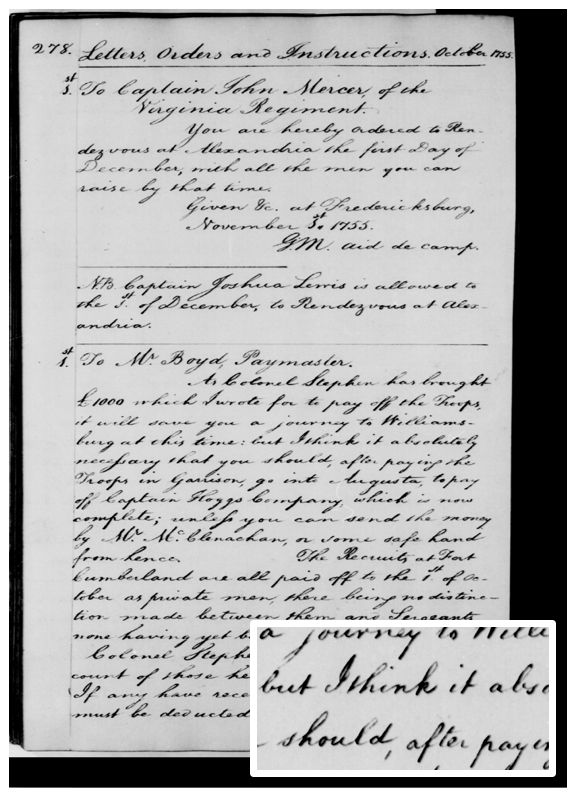 278. Letters, Orders and Instructions. October 1755.
1st. To Captain John Mercer, of the
Virginia Regiment.
You are hereby ordered to Ren-
dezvous at Alexandria the first Day of
December, with all the men you can
raise by that time.
Given &c. at Fredericksburg,
November 1st. 1755.
G.M. aid de camp.
N.B. Captain Joshua Lewis is allowed to
the 1st. of December, to Rendezvous at Alex-
andria.
1st. To Mr. Boyd, Paymaster.
As Colonel Stephen has brought
£1000 which I wrote for to pay off the Troops,
it will save you a journey to Williams-
burg at this time: but I think it absolutely
necessary that you should, after paying the
Troops in Garrison, go into Augusta, to pay
off Captain Hoggs Company, which is now
complete; unless you can send the money
by Mr. McClenachan, or some safe hand
from hence. The Recruits at Fort
Cumberland are all paid off to the 1st. of Oc-
tober as private men, there being no distinc-
tion made between them and Sergeants
none having yet b
Colonel Stephe
count of those he
If any have rece
must be deducted
a journey to Willi
but I think it abso
should, after payin